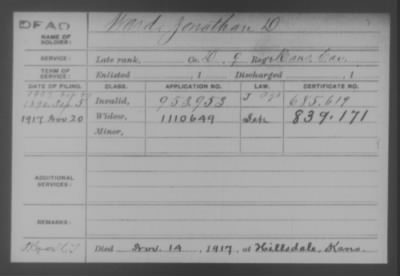 DEAD
NAME OF SOLDIER: Ward, Jonathan D
SERVICE: Late rank, Co. D, 9 Reg't Kans. Cav.
TERM OF SERVICE: Enlisted , 1 Discharged , 1
DATE OF FILING. CLASS. APPLICATION NO. LAW. CERTIFICATE NO.
Invalid, 953953 685.619
1917 Nov 20 Widow, 1110649 839.171
Minor,
ADDITIONAL SERVICES:
REMARKS:
Died Nov. 14, 1917, at Hillsdale, Kans.